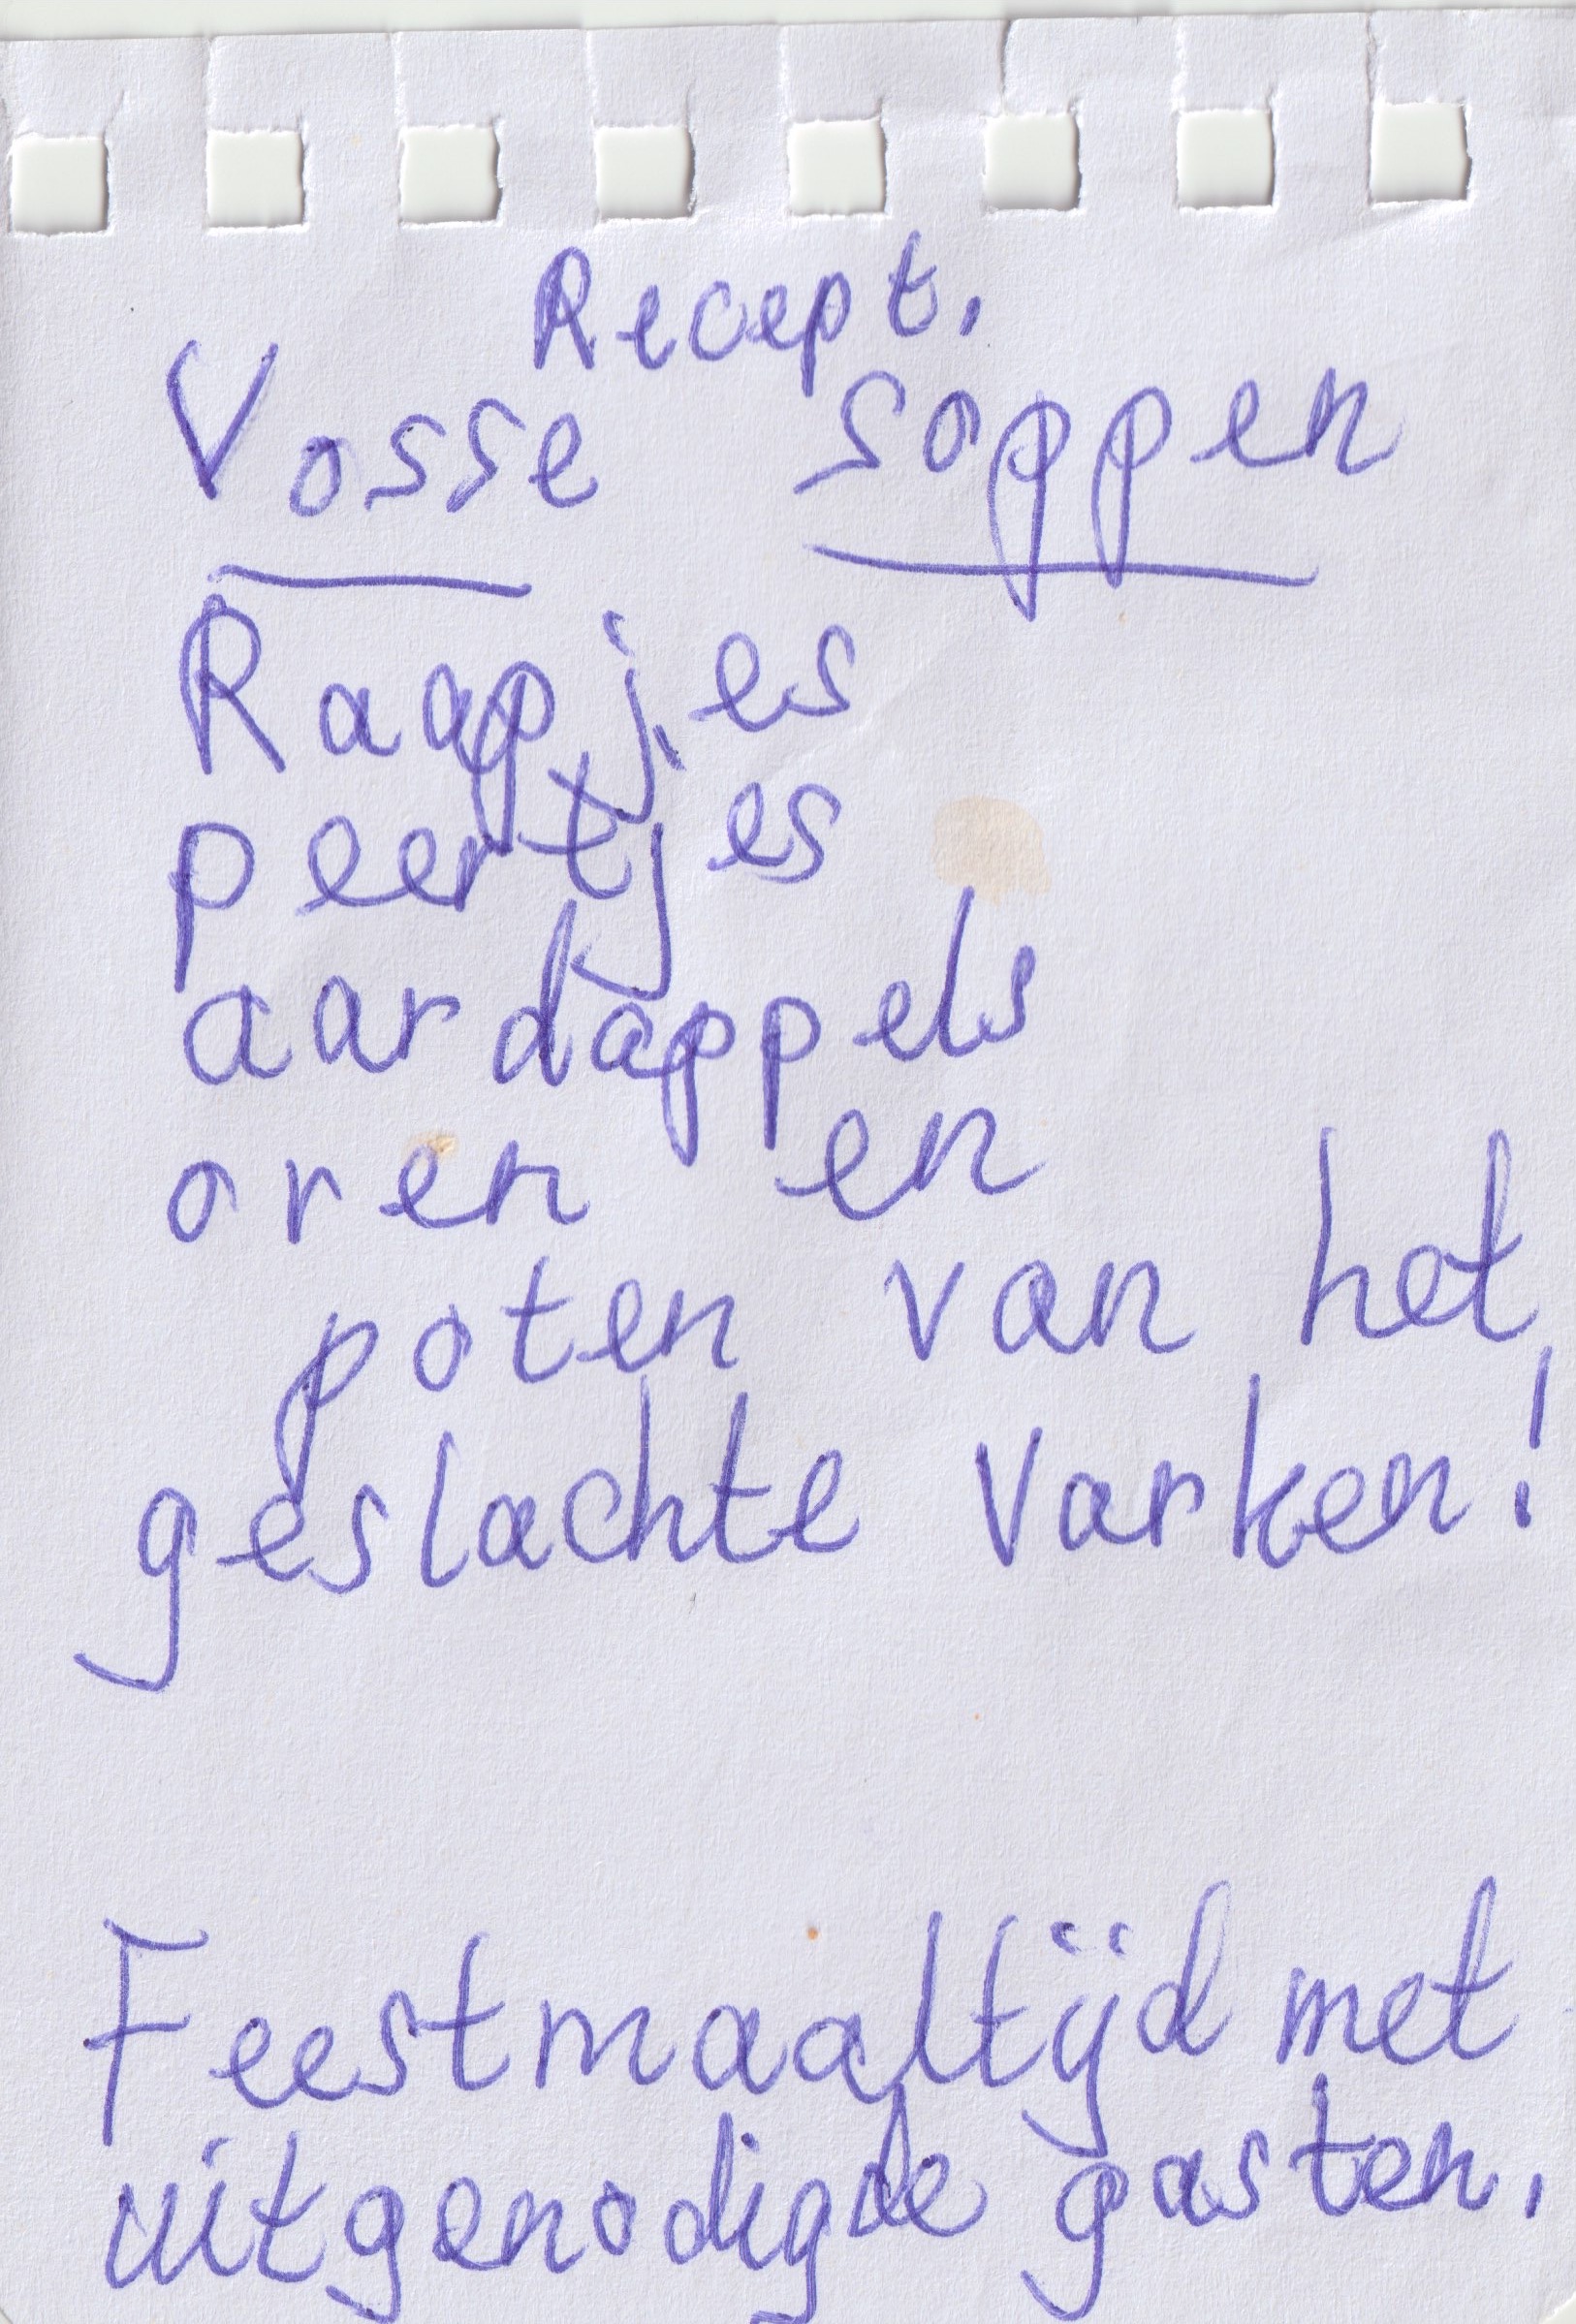 Recept.
Vosse soppen
Raapjes
peertjes
aardappels
oren en
poten van het
geslachte varken!
Feestmaaltijd met
uitgenodigde gasten.